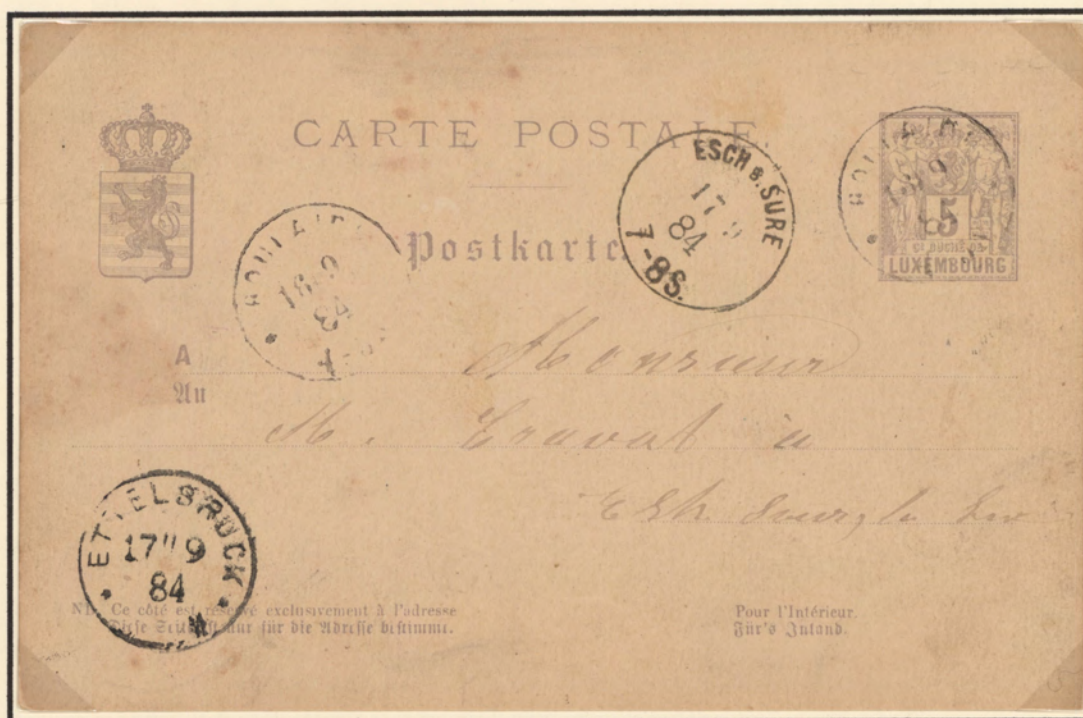 CARTE POSTALE
Postkarte
ESCH s. SURE
17 9
84
7-8S.
5
Gd DUCHÉ DE
LUXEMBOURG
16 9
A
An
Monsieur
M. Gravat a
Esch
ETTELBRUCK
17 9
84
NB. Ce côté est réservé exclusivement à l'adresse
Diese Seite ist nur für die Adresse bestimmt.
Pour l'Intérieur.
Für's Inland.